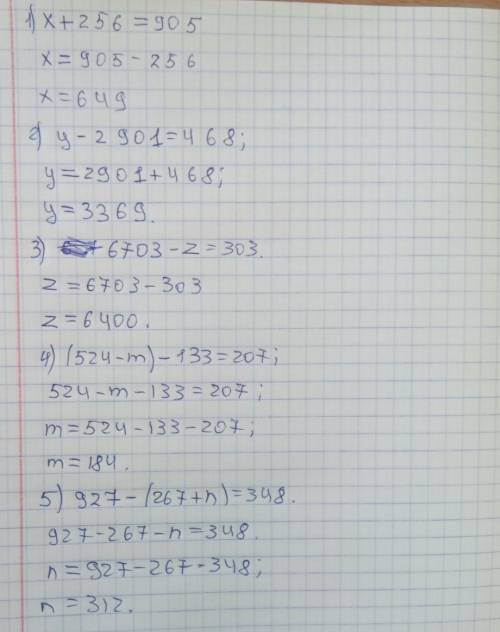 1) x + 256 = 905
x = 905 - 256
x = 649
2) y - 2901 = 468;
y = 2901 + 468;
y = 3369.
3) 6703 - z = 303.
z = 6703 - 303
z = 6400.
4) (524 - m) - 133 = 207;
524 - m - 133 = 207;
m = 524 - 133 - 207;
m = 184.
5) 927 - (267 + n) = 348.
927 - 267 - n = 348.
n = 927 - 267 - 348;
n = 312.